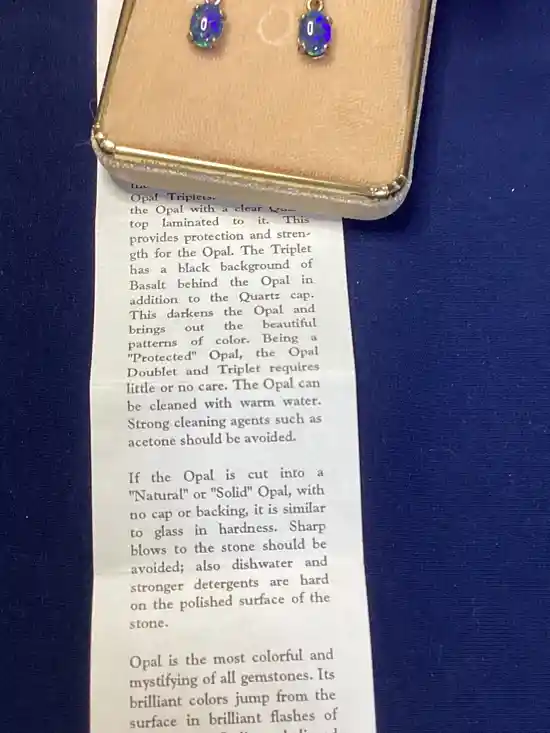 Opal Triplets.
the Opal with a clear
top laminated to it. This
provides protection and stren-
gth for the Opal. The Triplet
has a black background of
Basalt behind the Opal in
addition to the Quartz cap.
This darkens the Opal and
brings out the beautiful
patterns of color. Being a
"Protected" Opal, the Opal
Doublet and Triplet requires
little or no care. The Opal can
be cleaned with warm water.
Strong cleaning agents such as
acetone should be avoided.
If the Opal is cut into a
"Natural" or "Solid" Opal, with
no cap or backing, it is similar
to glass in hardness. Sharp
blows to the stone should be
avoided; also dishwater and
stronger detergents are hard
on the polished surface of the
stone.
Opal is the most colorful and
mystifying of all gemstones. Its
brilliant colors jump from the
surface in brilliant flashes of